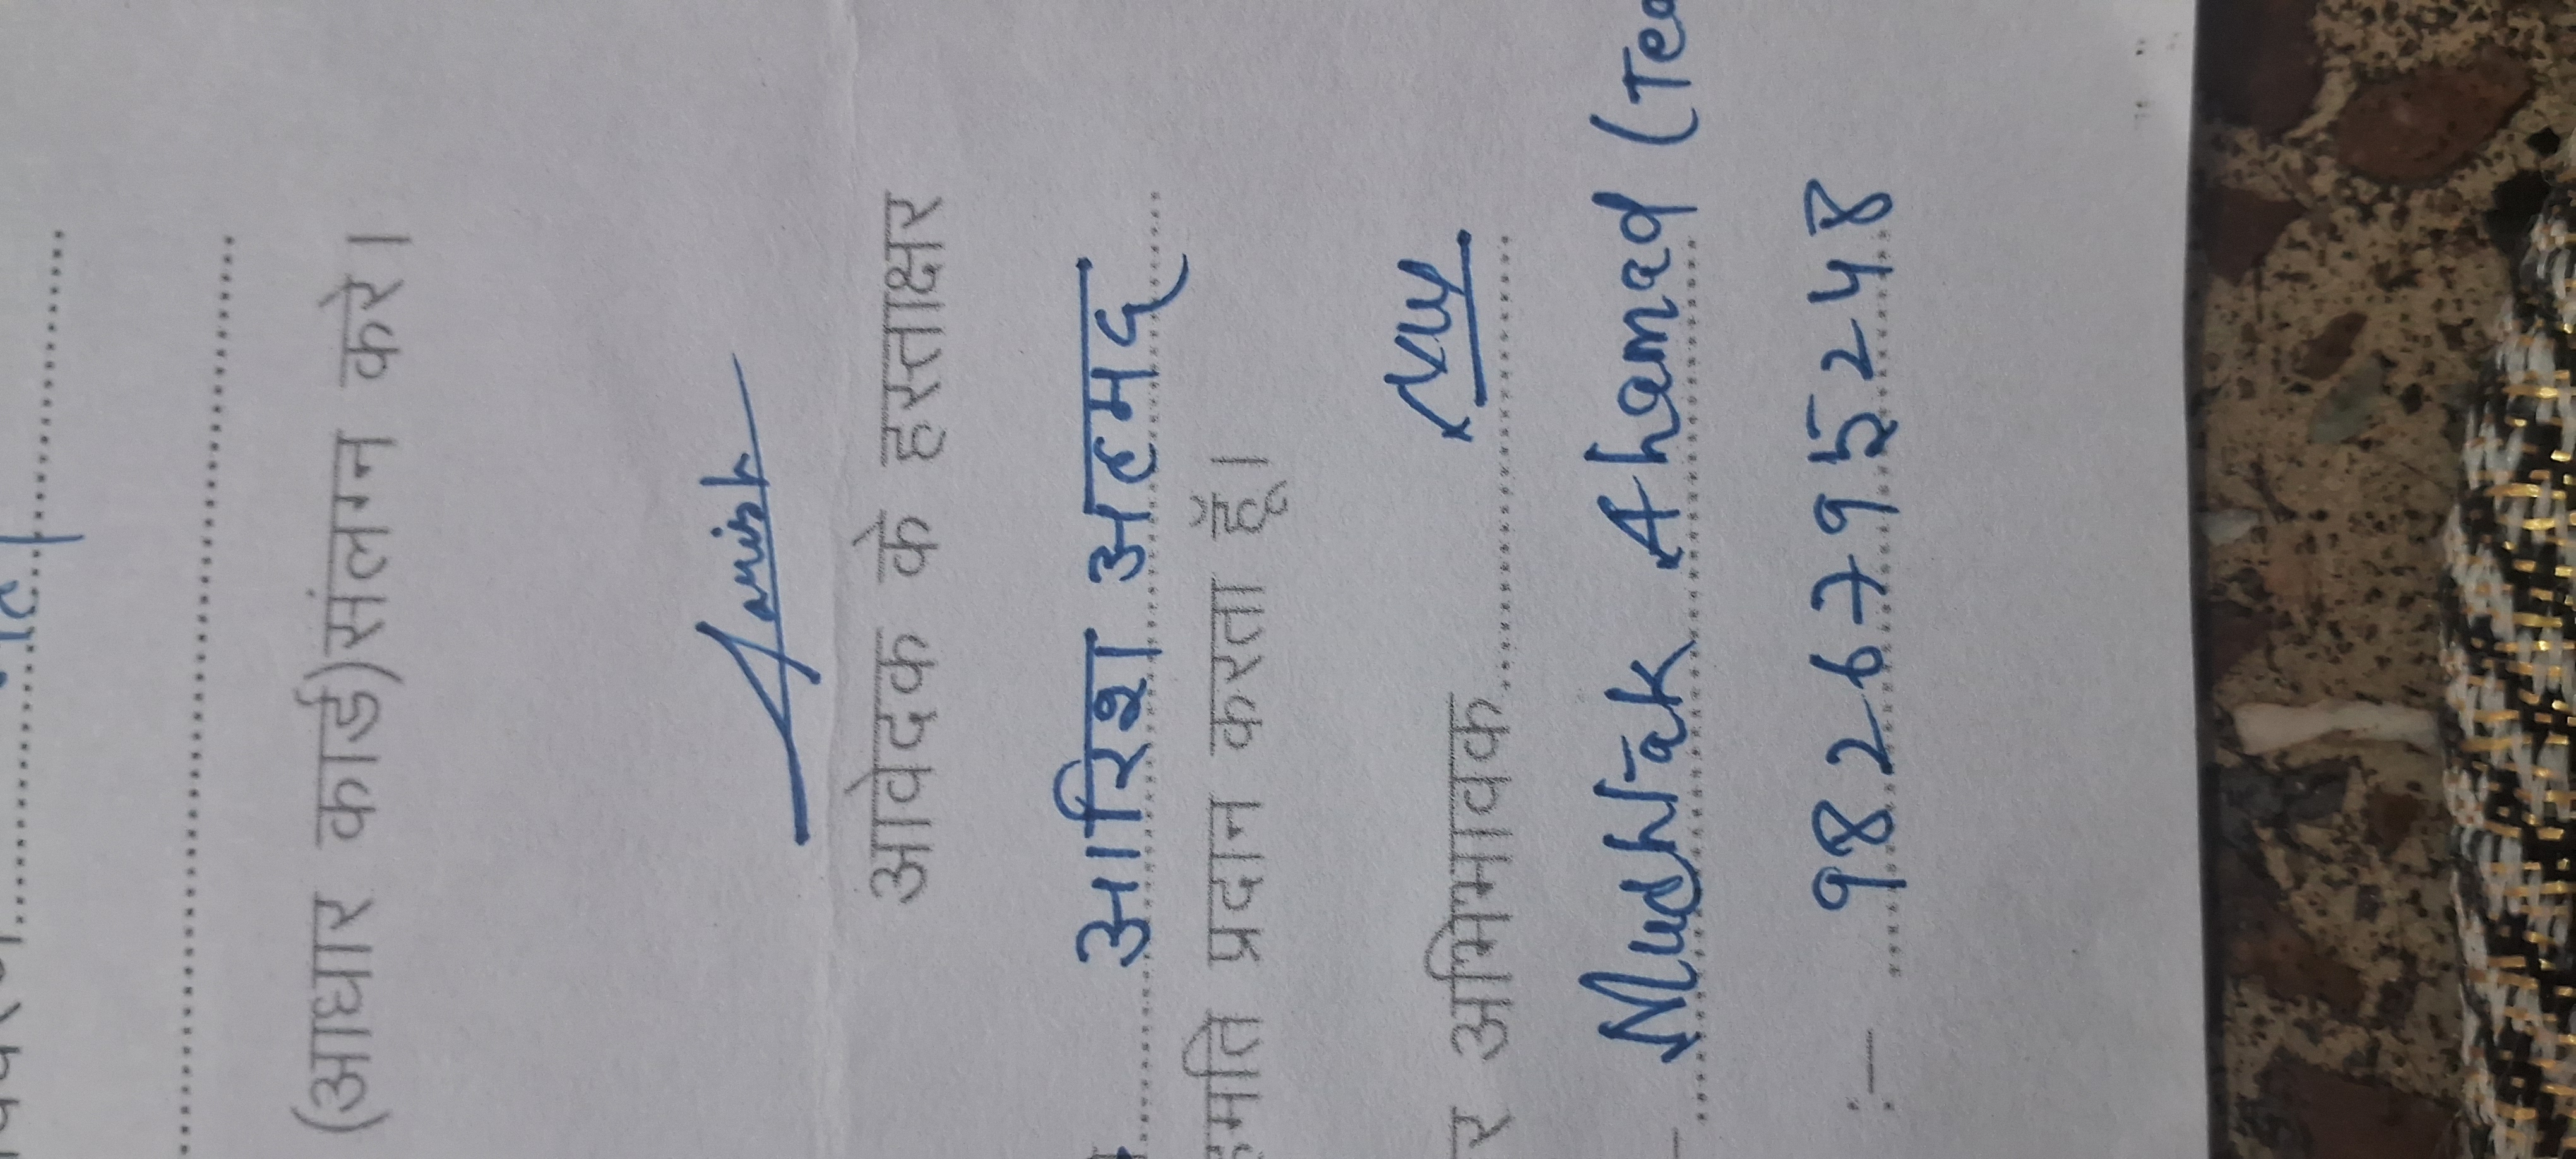 (आधार कार्ड)संलग्न करे।
Aarish
आवेदक के हस्ताक्षर
आरिश अहमद
प्रदान करता हूँ।
अभिभावक
Mushtak Ahamad (Tea
:— 9826795248